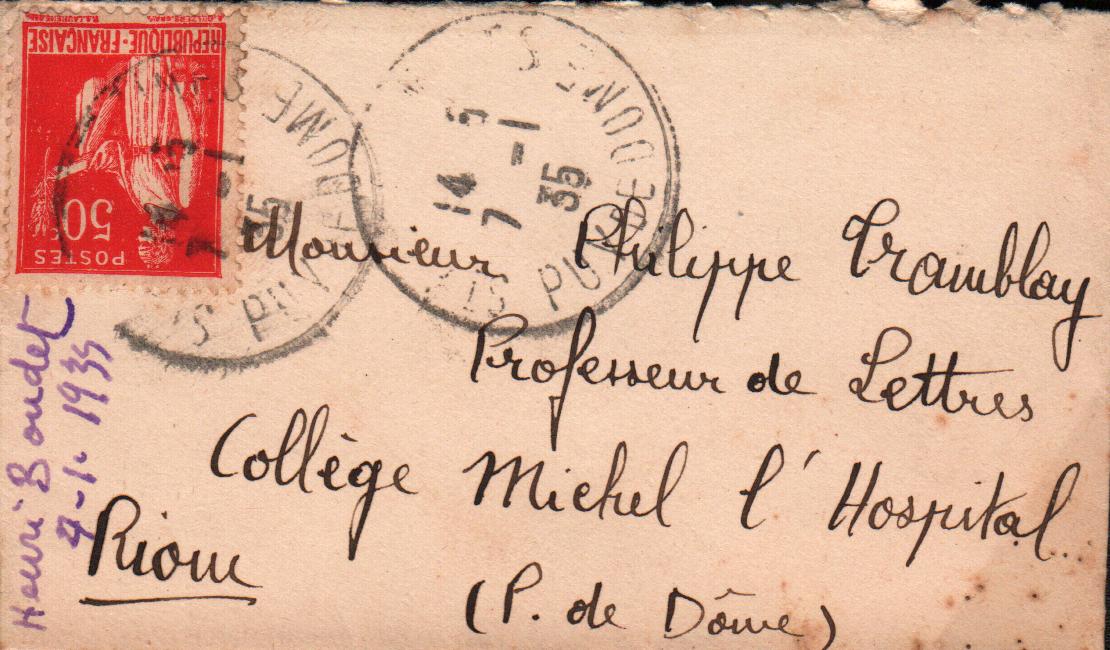 REPUBLIQUE-FRANÇAISE
50c
POSTES
14 5
7 -1
35
PUY DE DOME
14 5
7 -1
35
PUY DE DOME
Monsieur Philippe Tramblay
Professeur de Lettres
Collège Michel l'Hospital
Riom
(P. de Dôme)
Henri Boudet
7-1-1935